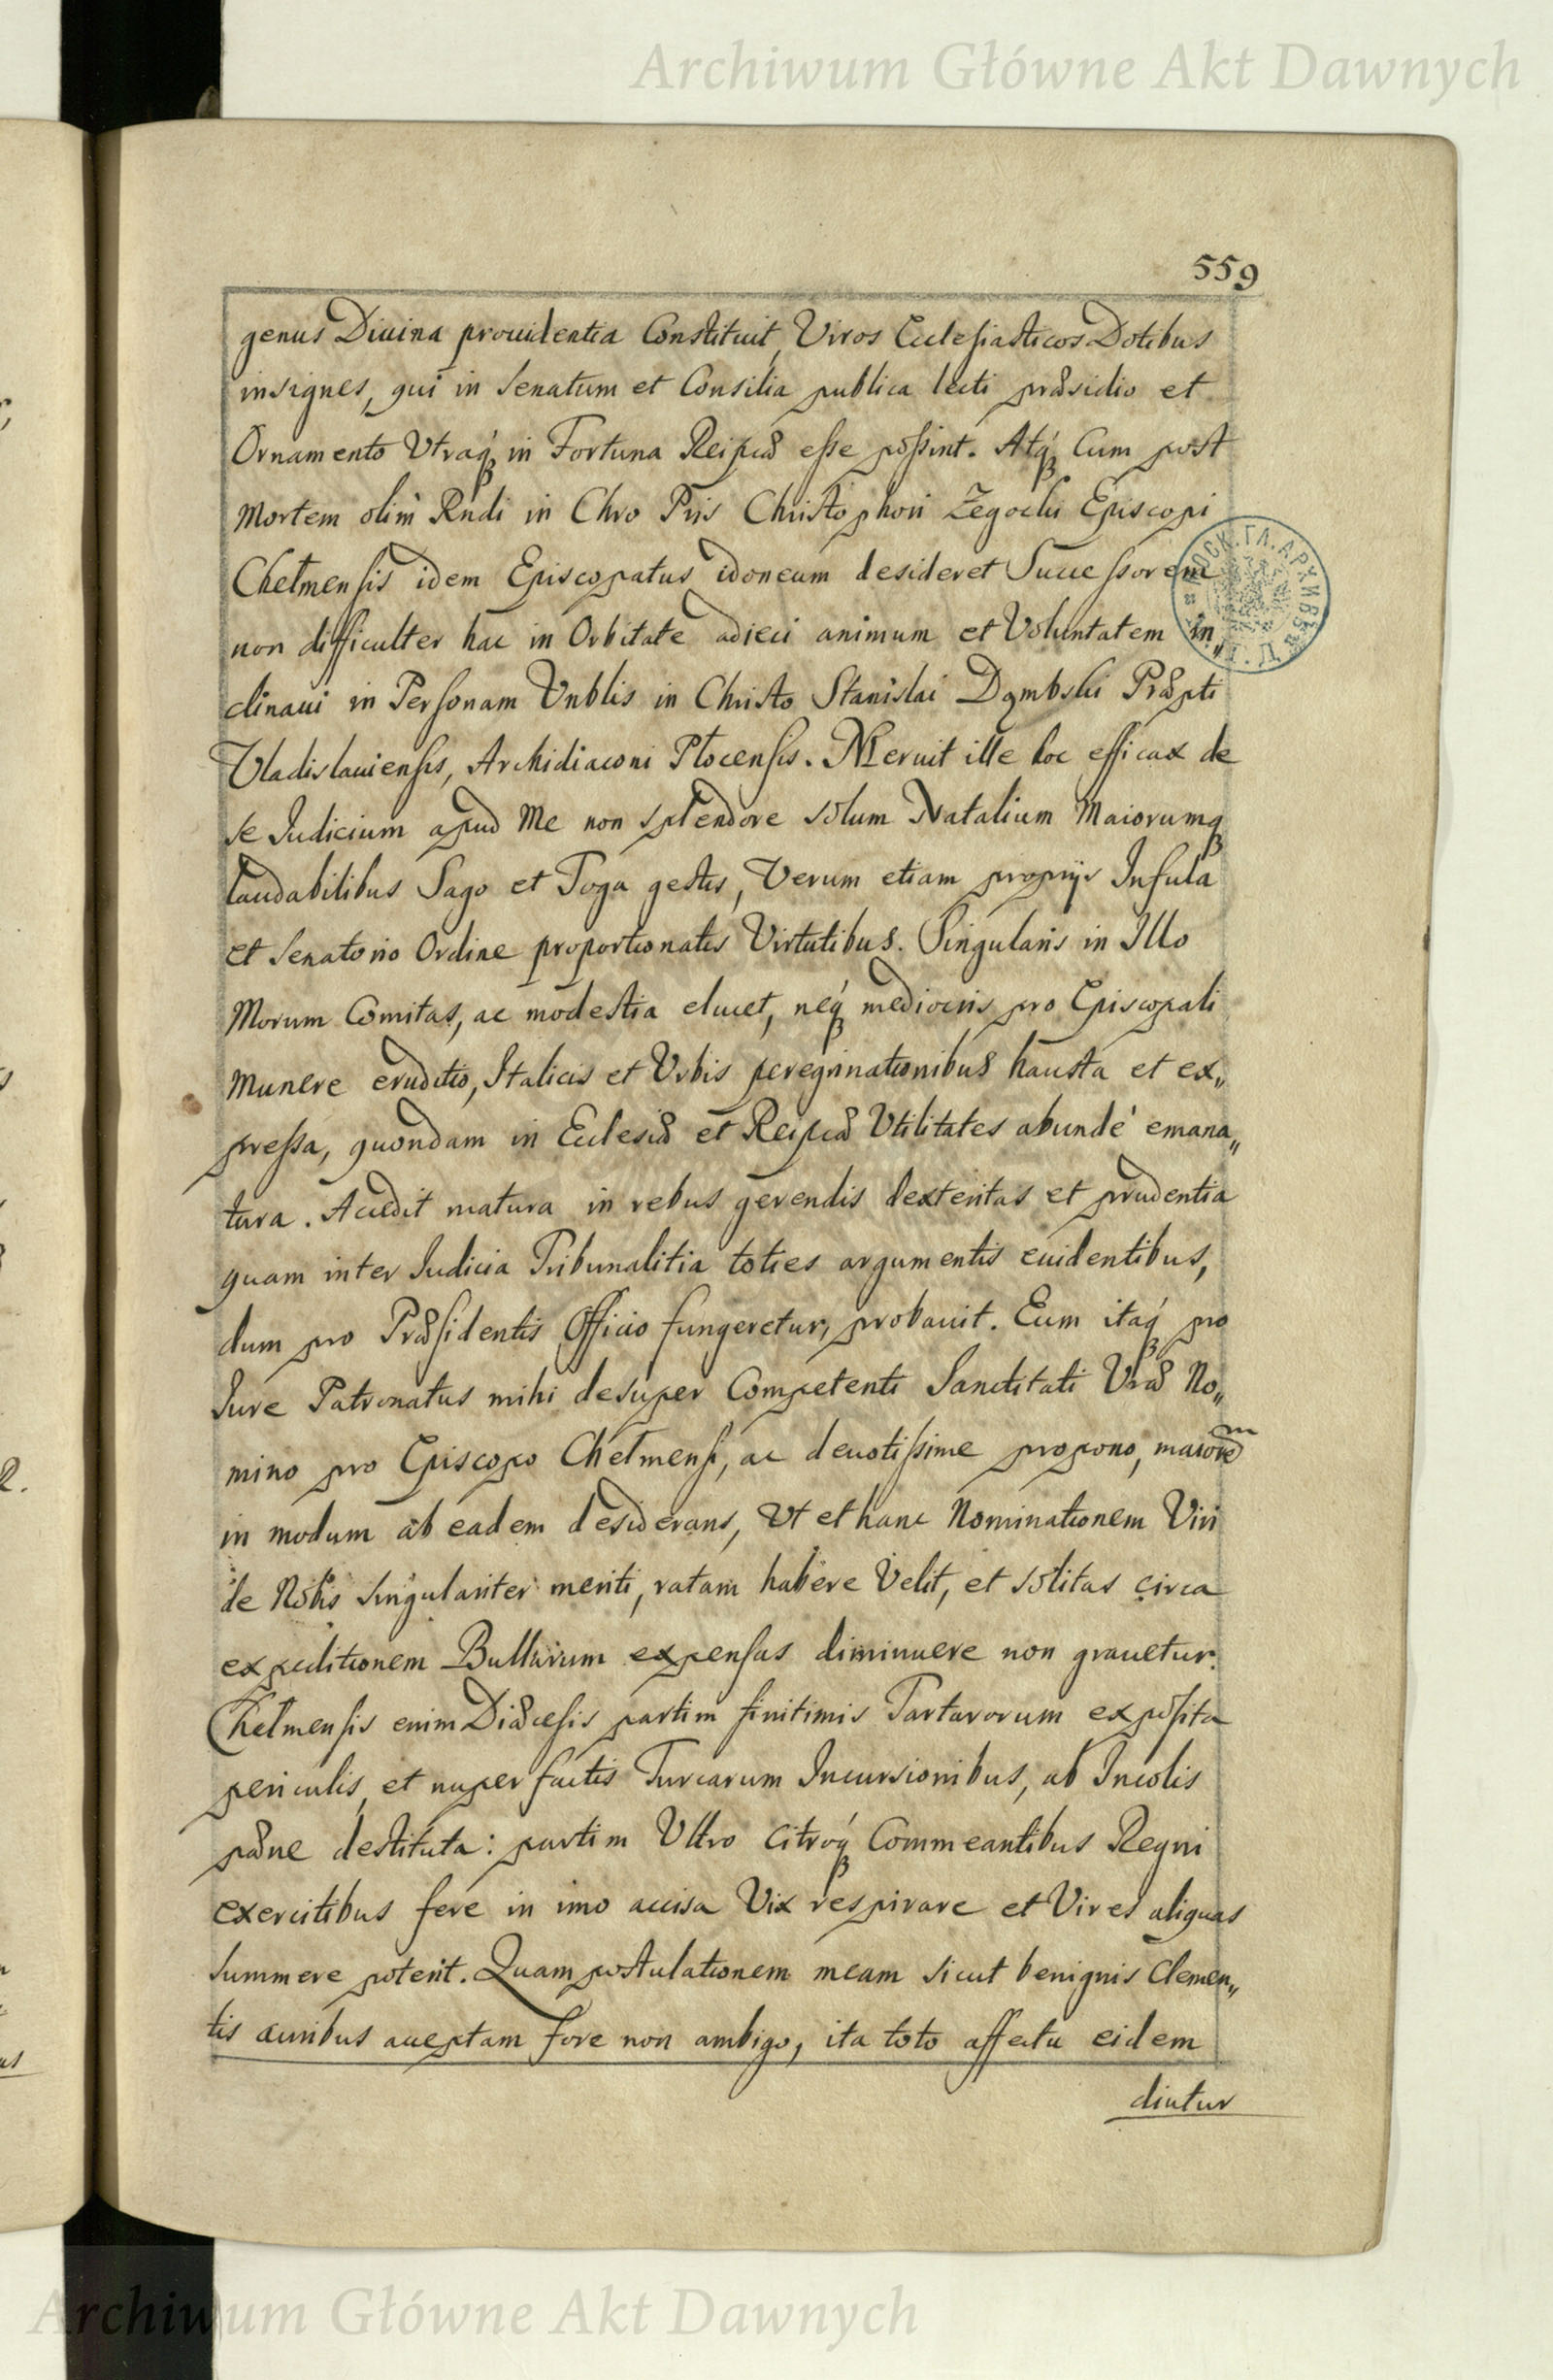 Archiwum Główne Akt Dawnych
559
genus Diuina prouidentia Constituit, Viros Ecclesiasticos Dotibus
insignes, qui in Senatum et Consilia publica lecti præsidio et
Ornamento Vtraq́ in Fortuna Reipcæ esse possint. Atq́ Cum post
Mortem olim Rndi in Chro Pris Christophori Zegocki Episcopi
Chełmensis idem Episcopatus idoneum desideret Successorem
non difficulter hac in Orbitate adieci animum et Voluntatem in„
clinaui in Personam Vnblis in Christo Stanislai Dąmbski Præpti
Vladislauiensis, Archidiaconi Płocensis. Meruit ille hoc efficax de
se Iudicium apud Me non splendore solum Natalium Maiorumq
laudabilibus Sago et Toga gestis, Verum etiam propriys Insula
et Senatorio Ordine proportionatis Virtutibus. Singularis in Illo
Morum Comitas, ac modestia elucet, neq́ mediocris pro Episcopali
munere eruditio, Italicis et Vrbis peregrinationibus hausta et ex„
pressa, quondam in Ecclesiæ et Reipcæ Vtilitates abundé emana„
tura. Accedit matura in rebus gerendis dexteritas et prudentia
quam inter Iudicia Tribunalitia toties argumentis euidentibus,
dum pro Præsidentis Officio fungeretur, probauit. Eum itaq́ pro
Iure Patronatus mihi desuper Competenti Sanctitati Vræ No„
mino pro Episcopo Chełmensi, ac deuotissime propono, maiorem
in modum ab eadem desiderans, Vt et hanc Nominationem Viri
de Nobis singulariter meriti, ratam habere Velit, et solitas circa
expeditionem Bullarum expensas diminuere non grauetur.
Chełmensis enim Diæcesis partim finitimis Tartarorum exposita
periculis, et nuper factis Turcarum Incursionibus, ab Incolis
pæne destituta: partim Vltro Citroq́ Commeantibus Regni
exercitibus fere in imo accisa Vix respirare et Vires aliquas
summere poterit. Quam postulationem meam sicut benignis Clemen„
tis auribus acceptam fore non ambigo, ita toto affectu eidem
diutur
Archiwum Główne Akt Dawnych